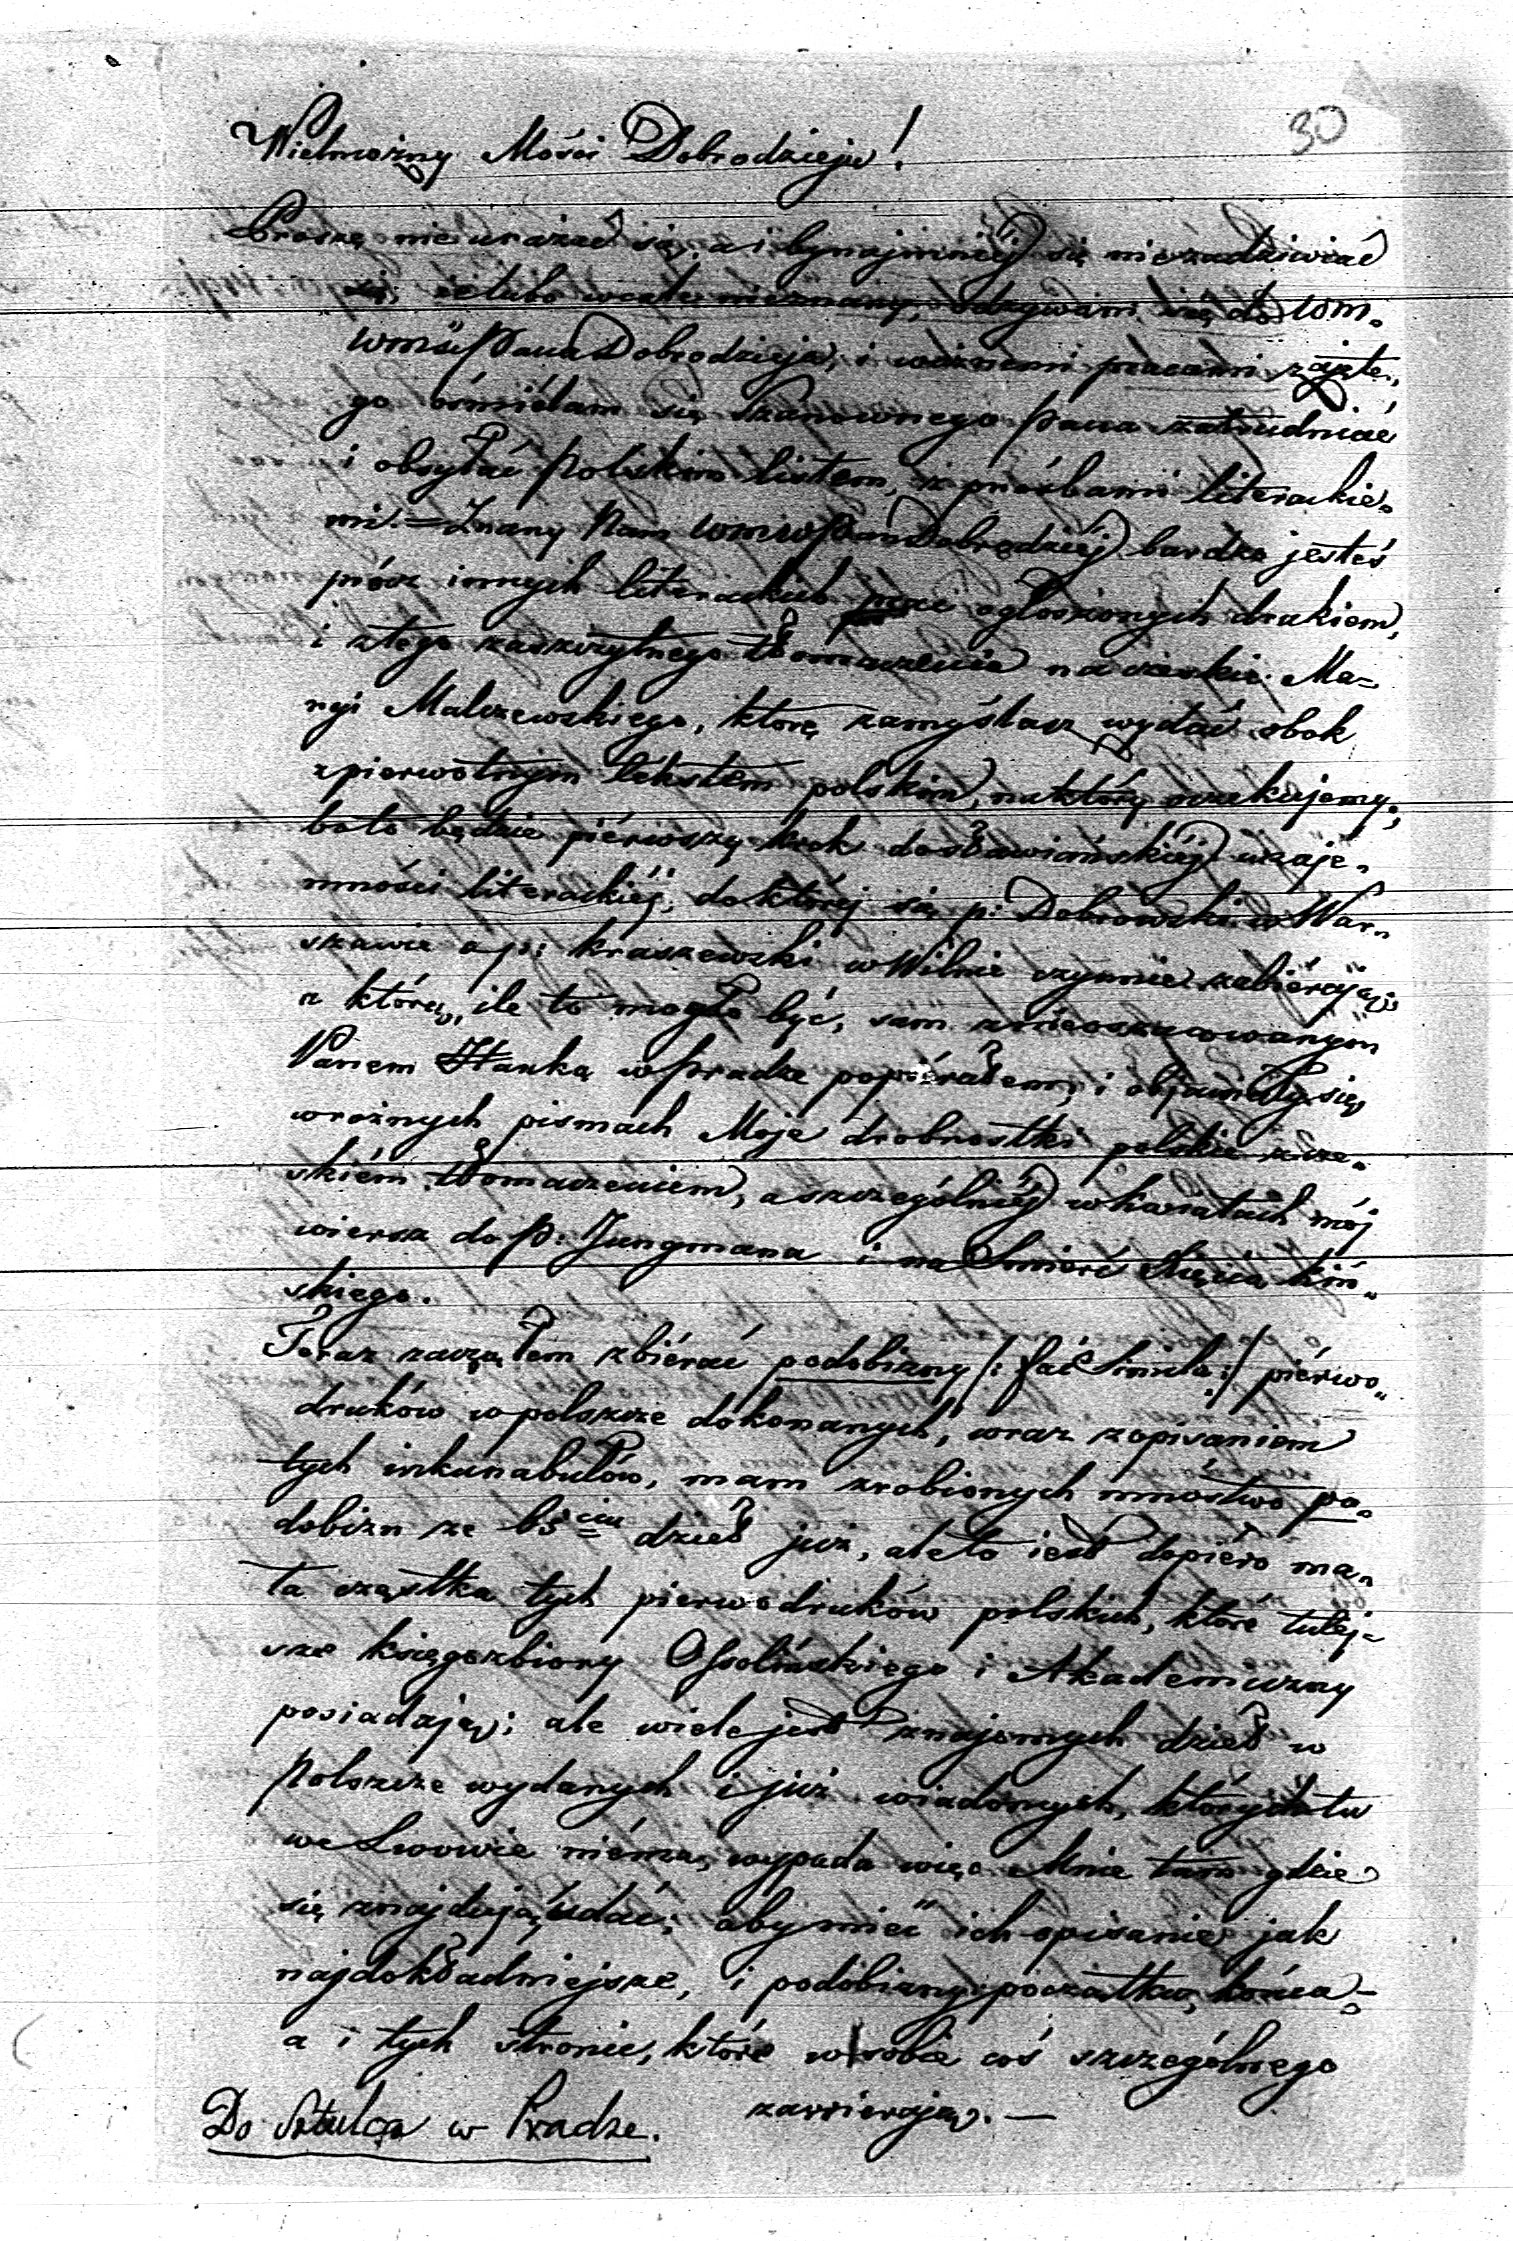 30
Wielmożny Mości Dobrodzieju!
Proszę nie urażać się, a i bynajmniéj się niezadziwiać
że lubo wcale nieznany, odzywam się do WM.
WMści Pana Dobrodzieja, i ważnemi pracami zajęte,,
go ośmiélam się Szanownego Pana zatrudniać
i obsyłać polskim listem, z prośbami literackie,,
mi. = Znany Nam WMW Pan Dobrodziéj bardzo jesteś
prócz innych literackich prac ogłoszonych drukiem,
i z tego zaszczytnego tłomaczenia na czeskie Ma=
ryi Malczewskiego, którę zamyślasz wydać obok
z pierwotnym tekstem polskim, na który oczekujemy,
bo to będzie piérwszy krok do sławiańskiéj wzaje,,
mności literackiéj, do któréj się p: Dobrowski w War,,
szawie a p: Kraszewski w Wilnie czynnie zabiérają,
a którą, ile to mogło być, sam z nieoszacowanym
Panem Hanką w Pradze popiérałem, i objawiały się
w rożnych pismach Moje drobnostki polskie z cze,,
skiém tłomaczeniem, a szczególniéj w kwiatach mój
wiersz do P: Jungmana i na Smierć Xięcia Kiń,,
skiego.
Teraz zacząłem zbiérać podobizny /: fac Simila :/ piérwo,,
druków w polszcze dokonanych, wraz z opisaniem
tych inkunabułów, mam zrobionych mnóstwo po,,
dobizn ze 65ciu dzieł już, ale to jest dopiero ma,,
ła cząstka tych pierwodruków polskich, które tutej=
sze księgozbiory Ossolińskiego i Akademiczny
posiadają; ale wiele jest znajomych dzieł w
Polszcze wydanych i już wiadomych, których tu
we Lwowie niéma, wypada więc Mnie tam gdzie
się znajdują udać, aby mieć ich opisanie jak
najdokładniejsze, i podobizny początku, końca,=
a i tych stronic, które w sobie coś szczególnego
zawierają. —
Do Sztulca w Pradze.